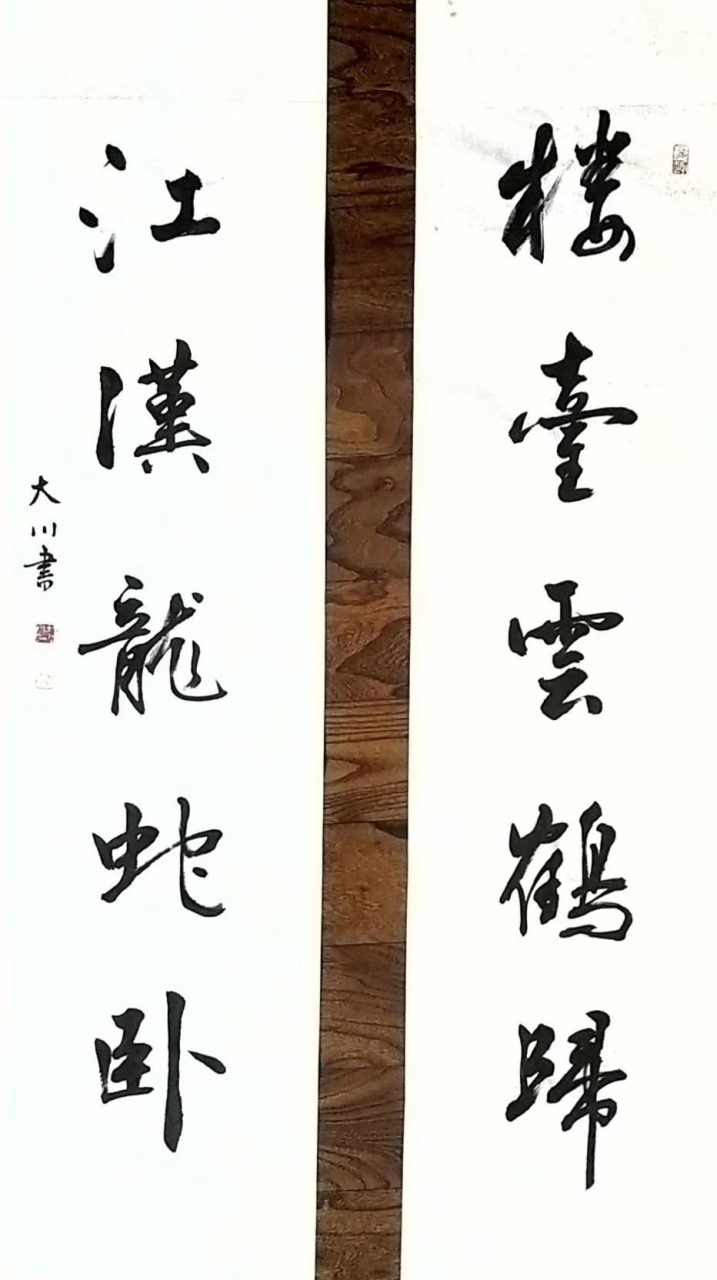 楼臺雲鶴歸
江漢龍蛇卧
大川書